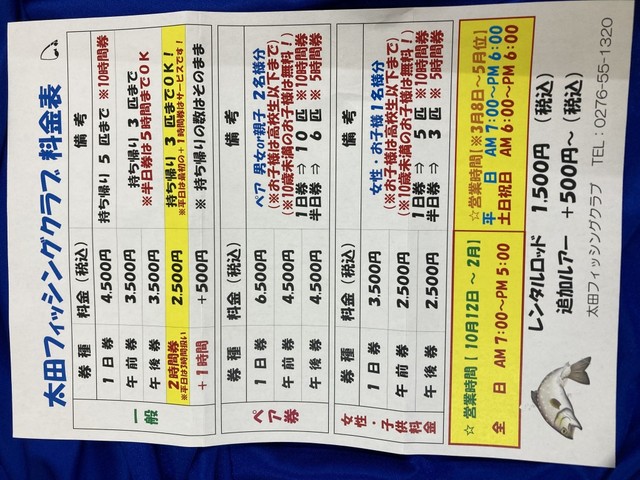 太田フィッシングクラブ 料金表
一般
券種 料金(税込) 備考
1日券 4,500円 持ち帰り 5 匹まで ※10時間券
午前券 3,500円 持ち帰り 3 匹まで
午後券 3,500円 ※半日券は5時間までOK
2時間券 2,500円 持ち帰り 3 匹までOK!
※平日は3時間扱い ※平日は最初の+1時間券はサービスです!
+1時間 +500円 ※ 持ち帰りの数はそのまま
ペア券
券種 料金(税込) 備考
1日券 6,500円 ペア 男女or親子 2名様分
午前券 4,500円 (※お子様は高校生以下まで)
(※10歳未満のお子様は無料!)
午後券 4,500円 1日券 ⇒ 10 匹 ※10時間券
半日券 ⇒ 6 匹 ※ 5時間券
女性・子供料金
券種 料金(税込) 備考
1日券 3,500円 女性・お子様 1名様分
午前券 2,500円 (※お子様は高校生以下まで)
(※10歳未満のお子様は無料!)
午後券 2,500円 1日券 ⇒ 5 匹 ※10時間券
半日券 ⇒ 3 匹 ※ 5時間券
☆ 営業時間 [ 10月12日 ~ 2月]
全 日 AM 7:00~PM 5:00
☆営業時間]※3月8日~5月位]
平 日 AM 7:00~PM 6:00
土日祝日 AM 6:00~PM 6:00
レンタルロッド 1,500円 (税込)
追加ルアー +500円~ (税込)
太田フィッシングクラブ TEL:0276-55-1320